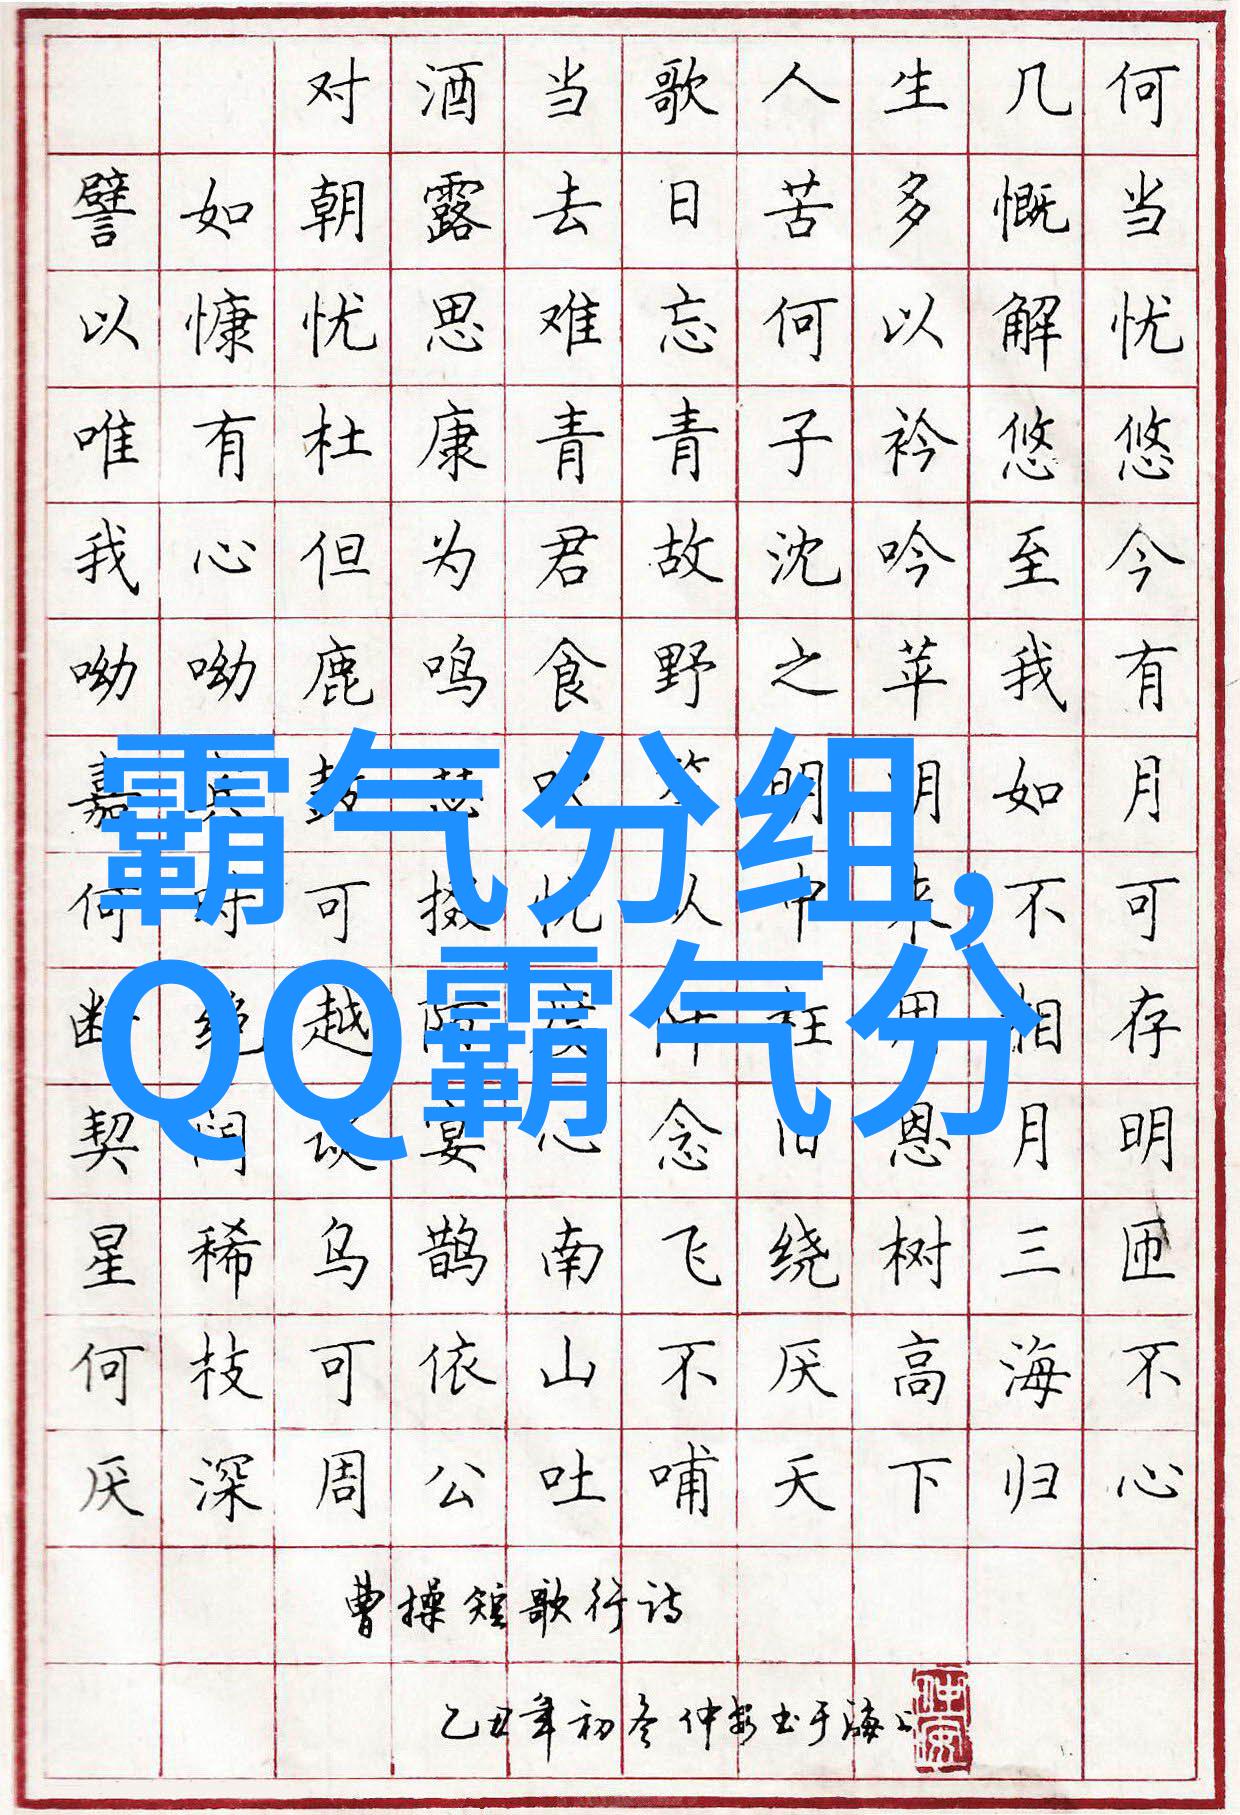 对酒当歌人生几何
譬如朝露去日苦多慨当
以慷忧思难忘何以解忧
唯有杜康青青子衿悠悠
我心但为君故沈吟至今
呦呦鹿鸣食野之苹我有
嘉宾鼓瑟吹笙明明如月
何时可掇忧从中来不可
断绝越陌度阡枉用相存
契阔谈宴心念旧恩月明
星稀乌鹊南飞绕树三匝
何枝可依山不厌高海不
厌深周公吐哺天下归心
曹操短歌行诗
乙丑年初冬仲安书于海上
仲安
霸气分组,
QQ霸气分